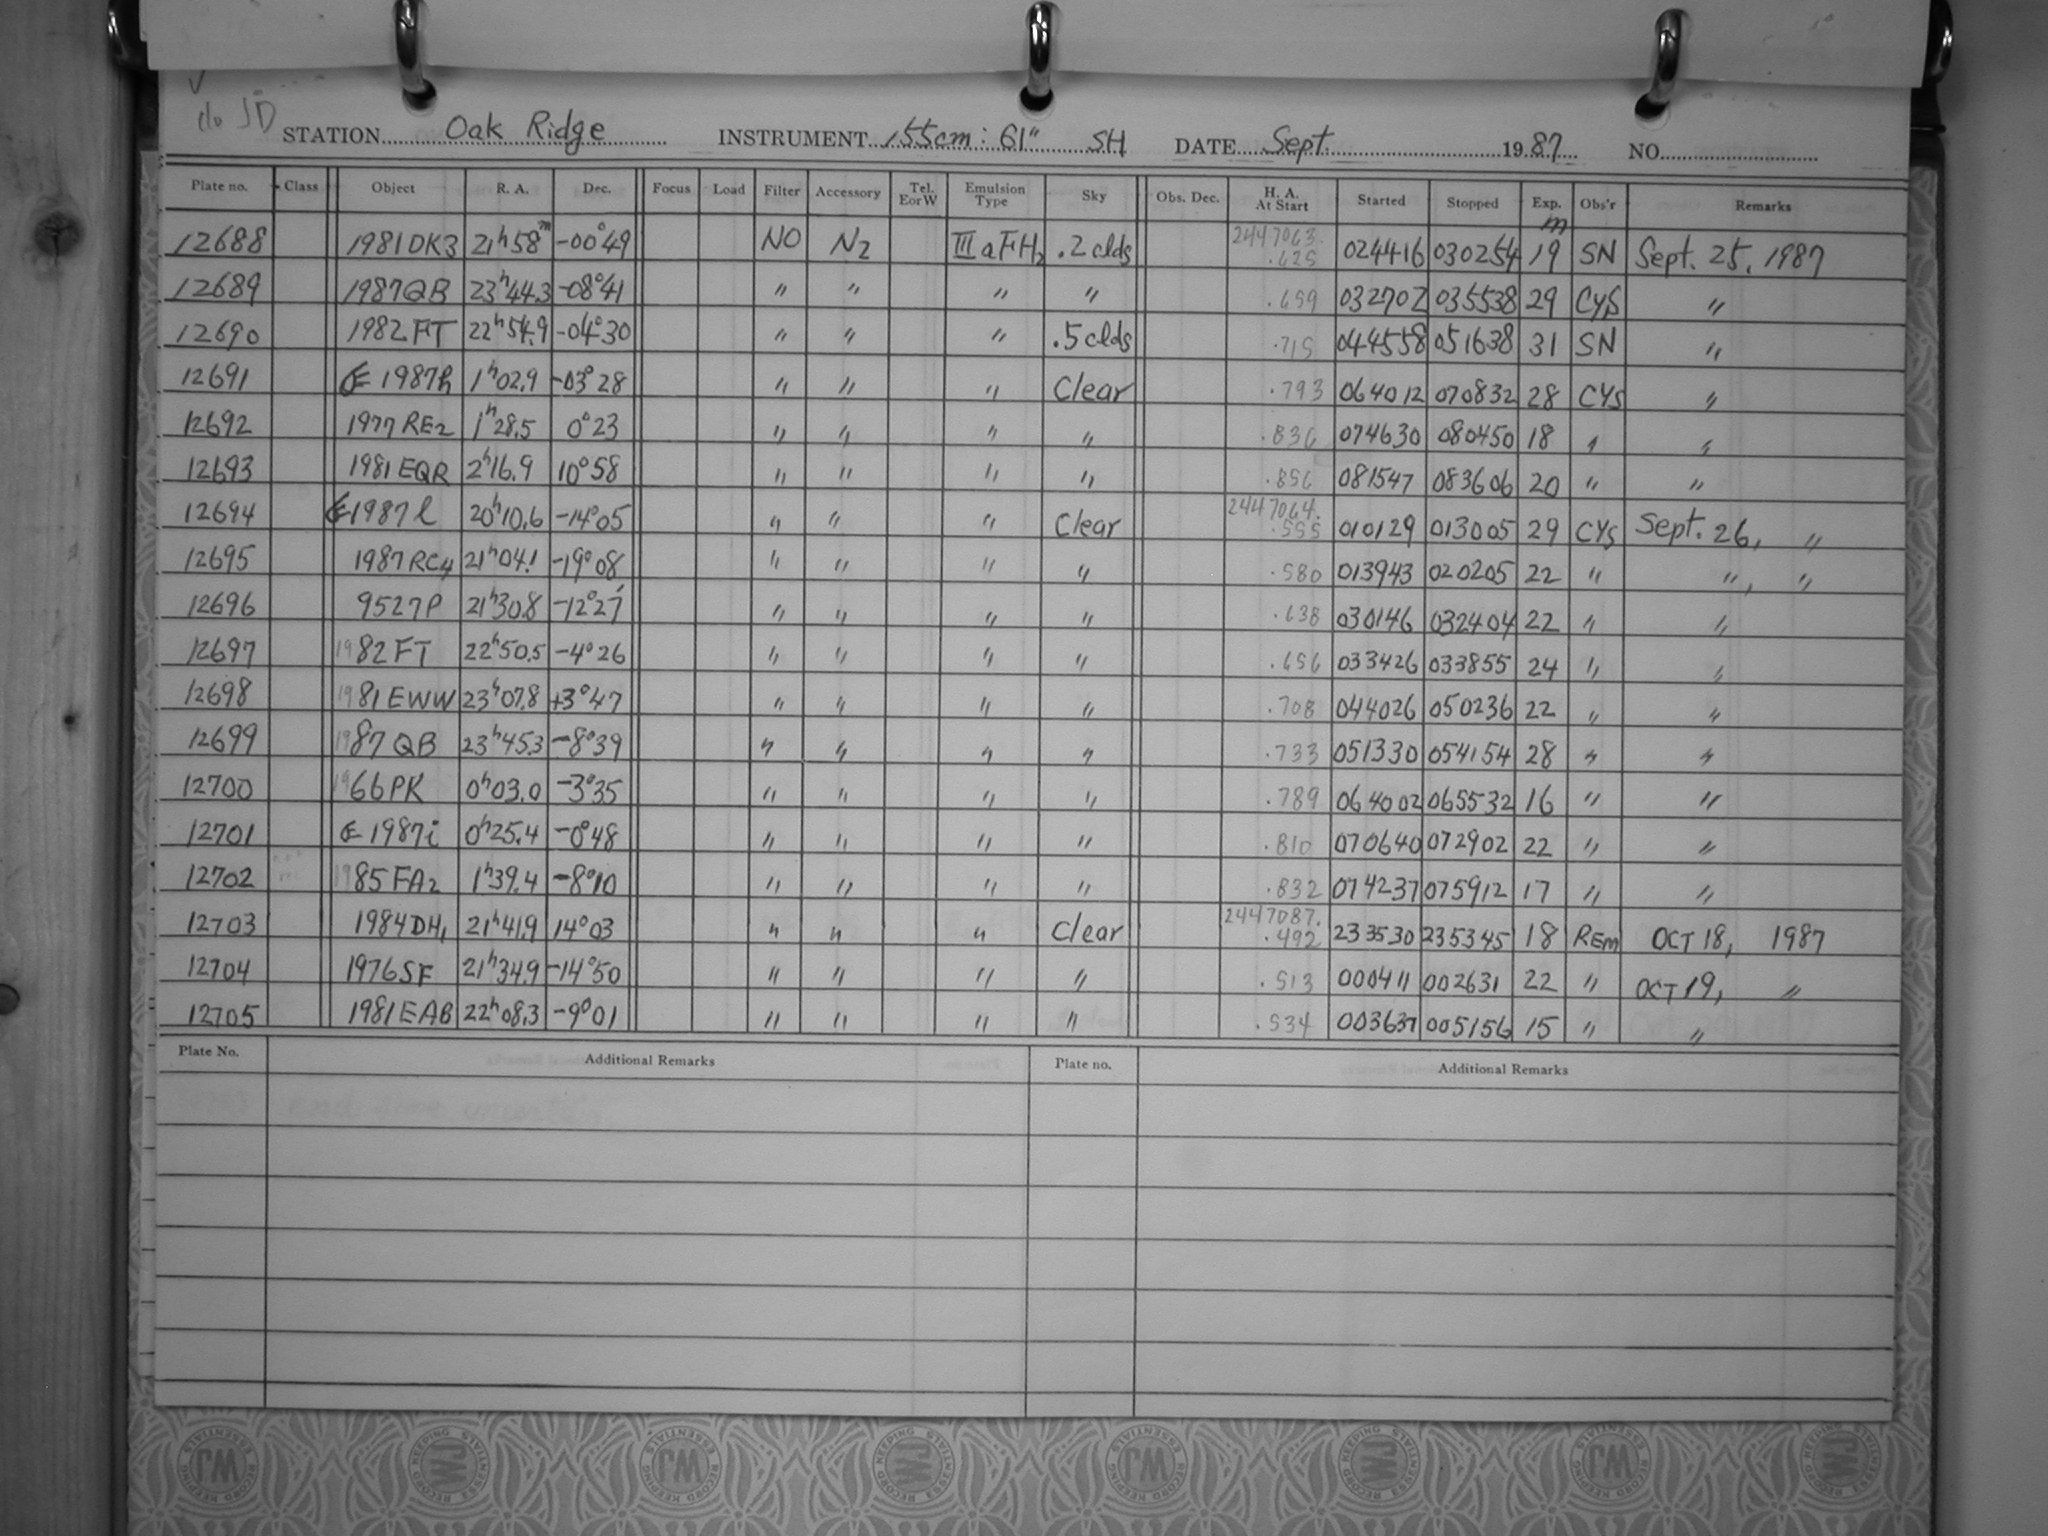 c/o JD
STATION Oak Ridge INSTRUMENT 155cm: 61" SH DATE Sept. 1987 NO.
Plate no. Class Object R. A. Dec. Focus Load Filter Accessory Tel. E or W Emulsion Type Sky Obs. Dec. H. A. At Start Started Stopped Exp. m Obs'r Remarks
12688 1981DK3 21h58m -00°49 NO N2 IIIaFH2 .2 clds 2447063. .625 024416 030254 19 SN Sept. 25, 1987
12689 1987QB 23h44.3 -08°41 " " " " .659 032702 035538 29 CYS "
12690 1982 FT 22h54.9 -04°30 " " " .5 clds .715 044558 051638 31 SN "
12691 1987h 1h02.9 -03°28 " " " Clear .793 064012 070832 28 CYS "
12692 1977 RE2 1h28.5 0°23 " " " " .836 074630 080450 18 " "
12693 1981 EQR 2h16.9 10°58 " " " " .856 081547 083606 20 " "
12694 1987l 20h10.6 -14°05 " " " Clear 2447064. .555 010129 013005 29 CYS Sept. 26, "
12695 1987 RC4 21h04.1 -19°08 " " " " .580 013943 020205 22 " ", "
12696 9527P 21h30.8 -12°27' " " " " .638 030146 032404 22 " "
12697 1982 FT 22h50.5 -4°26 " " " " .656 033426 033855 24 " "
12698 1981 EWW 23h07.8 +3°47 " " " " .708 044026 050236 22 " "
12699 1987 QB 23h45.3 -8°39 " " " " .733 051330 054154 28 " "
12700 1966PK 0h03.0 -3°35 " " " " .789 064002 065532 16 " "
12701 1987i 0h25.4 -0°48 " " " " .810 070640 072902 22 " "
12702 1985 FA2 1h39.4 -8°10 " " " " .832 074237 075912 17 " "
12703 1984DH1 21h41.9 14°03 " " " Clear 2447087. .492 233530 235345 18 REM OCT 18, 1987
12704 1976SF 21h34.9 -14°50 " " " " .513 000411 002631 22 " OCT 19, "
12705 1981 EAB 22h08.3 -9°01 " " " " .534 003637 005156 15 " "
Plate No. Additional Remarks Plate no. Additional Remarks